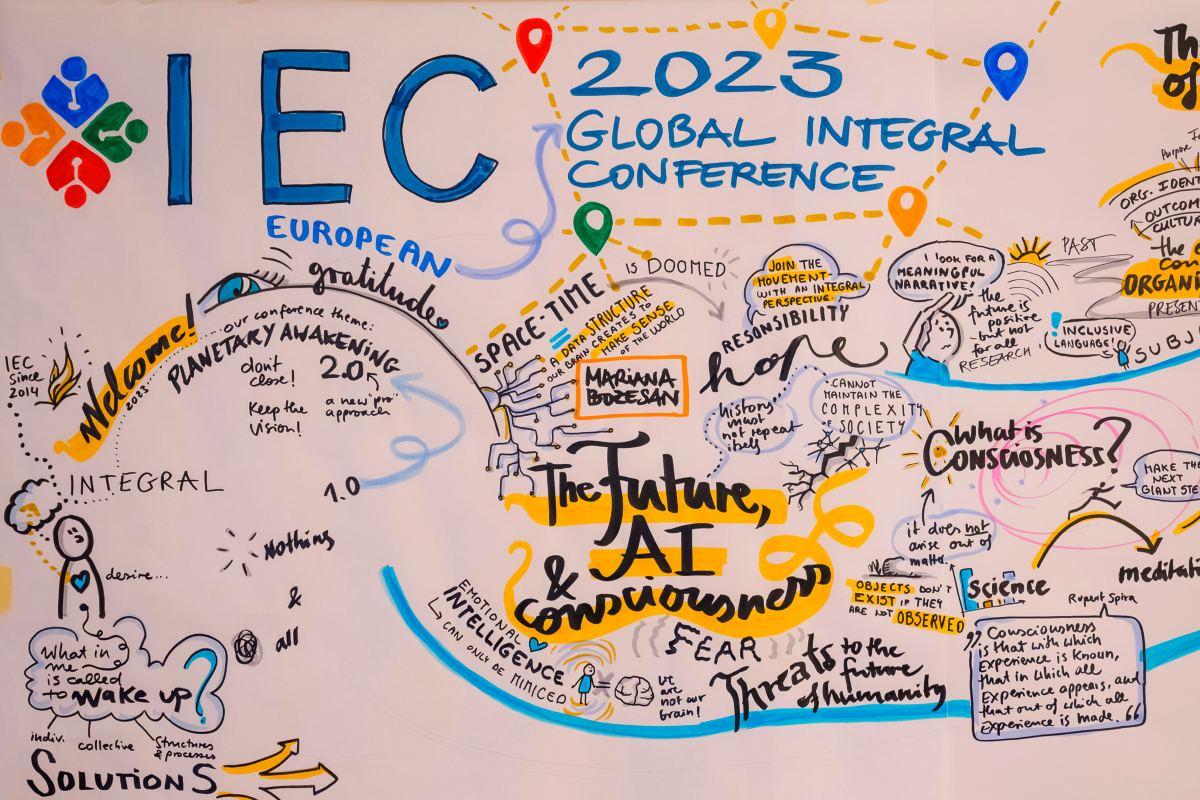 IEC
2023
GLOBAL INTEGRAL
CONFERENCE
EUROPEAN
IEC
since
2014
Welcome!
2023
gratitude
our conference theme:
PLANETARY AWAKENING
2.0
don't
close!
Keep the
vision!
a new "pro"
approach
1.0
INTEGRAL
desire...
Nothing
&
all
What in
me
is called
to wake up?
indiv.
collective
Structures
& processes
SOLUTIONS
SPACE-TIME
IS DOOMED
=
A DATA STRUCTURE
OUR BRAIN CREATES TO
MAKE SENSE
OF THE WORLD
MARIANA
BOZESAN
JOIN THE
MOVEMENT
WITH AN INTEGRAL
PERSPECTIVE.
RESONSIBILITY
hope
history
must
not repeat
itself
CANNOT
MAINTAIN THE
COMPLEXITY
OF SOCIETY
The Future,
AI
& Consciousness
EMOTIONAL
INTELLIGENCE
CAN ONLY BE MIMICED
=
WE
are
not our
brain!
FEAR
Threats to the
future
of humanity
I LOOK FOR A
MEANINGFUL
NARRATIVE!
the
future is
positive
- but not
for all
RESEARCH
PAST
PRESENT
! INCLUSIVE
LANGUAGE!
SUBJ
Th
of
Purpose
ORG. IDENT
OUTCOM
CULTUR
the
con
ORGANI
What is
CONSCIOSNESS?
it does not
arise out of
matter.
OBJECTS DON'T
EXIST IF THEY
ARE NOT OBSERVED
MAKE THE
NEXT
GIANT STE
meditati
science
Rupert Spira
„Consciousness
is that with which
Experience is known,
that in which all
Experience appears, and
that out of which all
experience is made.“